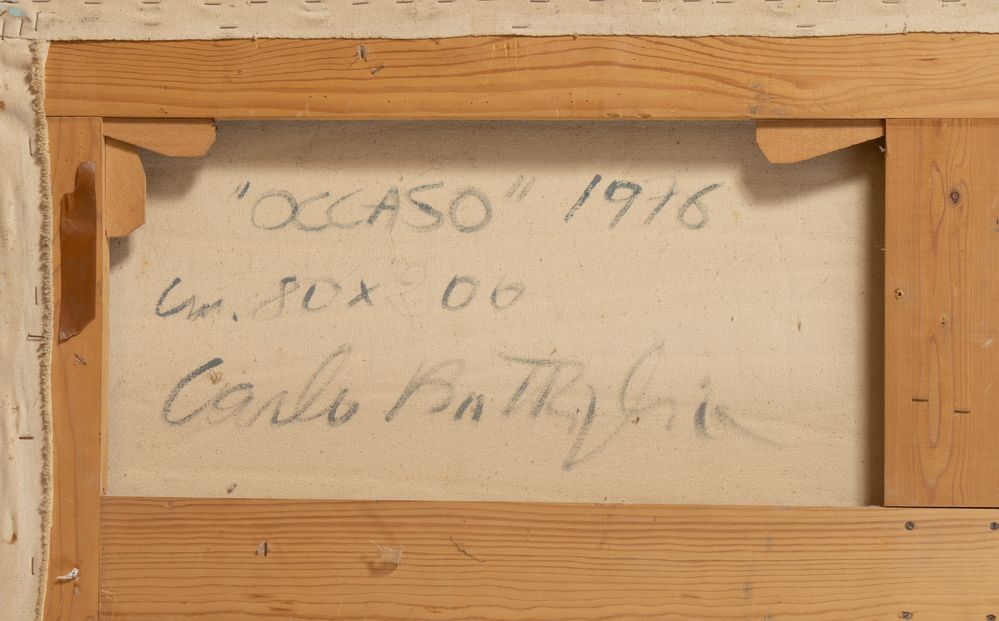 "OCCASO" 1976
cm. 80x200
Carlo Battaglia